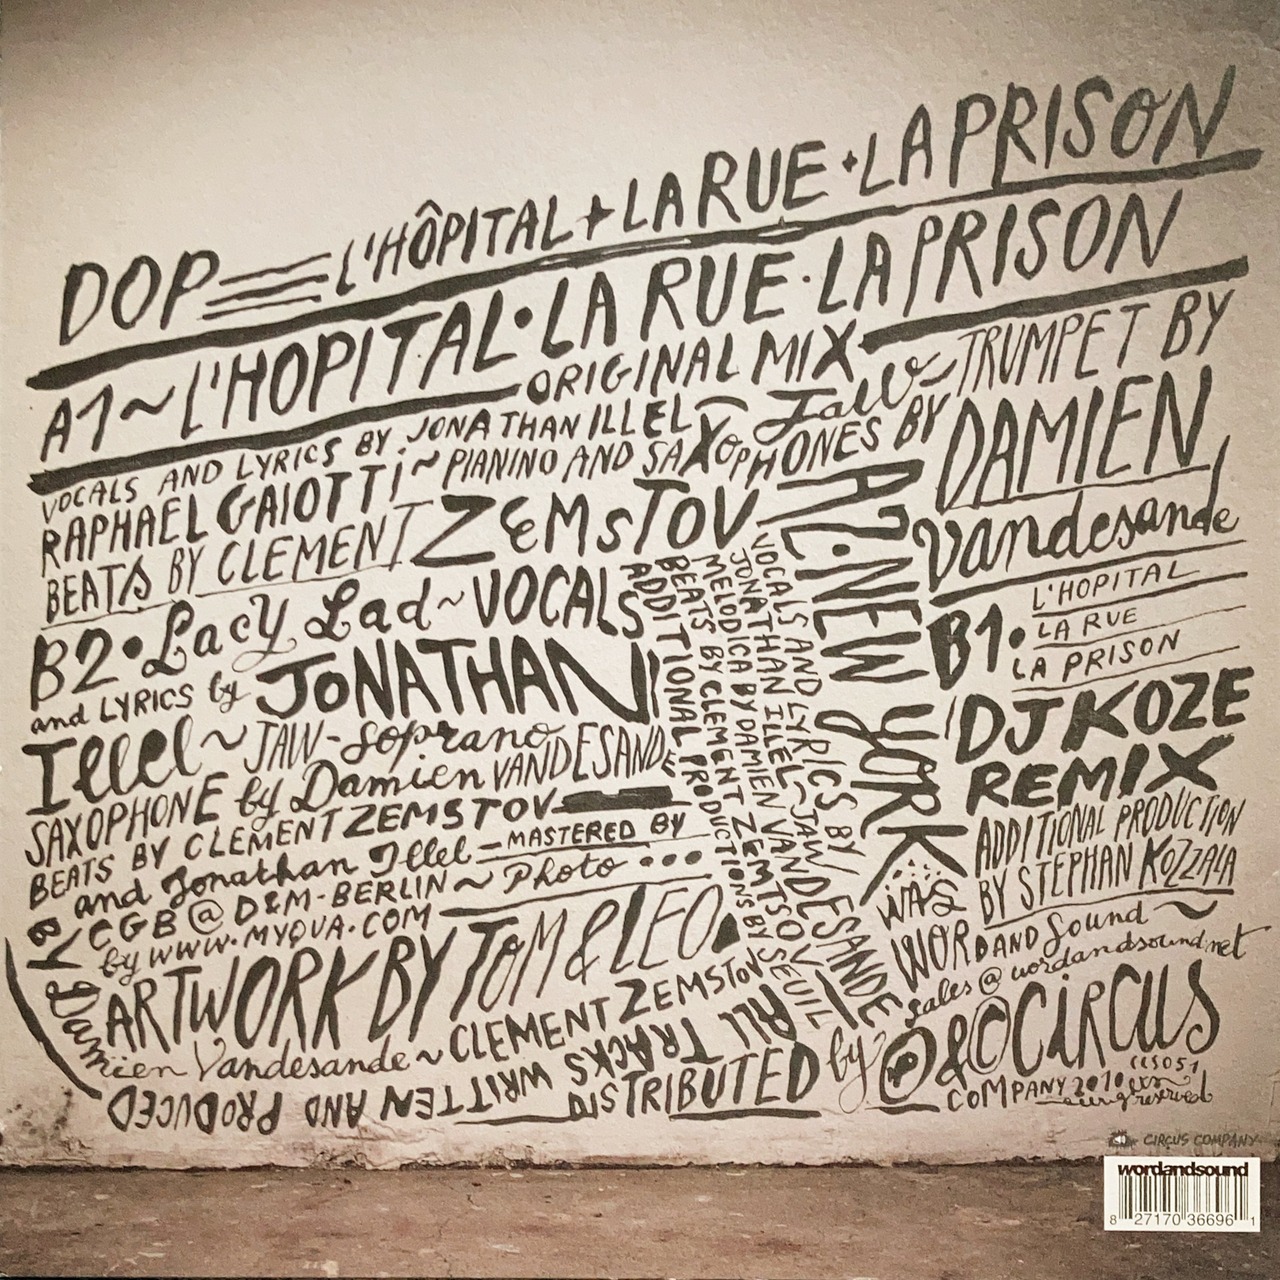 DOP L'HÔPITAL + LA RUE + LA PRISON
A1~L'HOPITAL•LA RUE•LA PRISON
ORIGINAL MIX
VOCALS AND LYRICS BY JONATHAN ILLEL~JAW~TRUMPET BY
RAPHAEL GAIOTTI~PIANINO AND SAXOPHONES BY
DAMIEN
Vandesande
BEATS BY CLEMENT ZEMSTOV
A2•NEW YORK
VOCALS AND LYRICS BY
JONATHAN ILLEL~JAW
MELODICA BY DAMIEN VANDESANDE
BEATS BY CLEMENT ZEMTSOV
ADDITIONAL PRODUCTIONS BY SEUIL
B1•L'HOPITAL
LA RUE
LA PRISON
DJ KOZE
REMIX
ADDITIONAL PRODUCTION
BY STEPHAN KOZZALA
B2•Lacy Lad~VOCALS
and LYRICS by JONATHAN
Illel~JAW-Soprano
SAXOPHONE by Damien VANDESANDE
BEATS BY CLEMENT ZEMSTOV
and Jonathan Illel—MASTERED BY
CGB @ D&M-BERLIN~Photo ...
by WWW.MYQUA.COM
ARTWORK BY TOM & LEO
ALL TRACKS WRITTEN AND PRODUCED
BY Damien Vandesande~CLEMENT ZEMSTOV
DISTRIBUTED by
WAS
WORDANDSound~
sales@wordandsound.net
℗&©CIRCUS
COMPANY 2010 CCS051
reserved
CIRCUS COMPANY
wordandsound
8 27170 36696 1